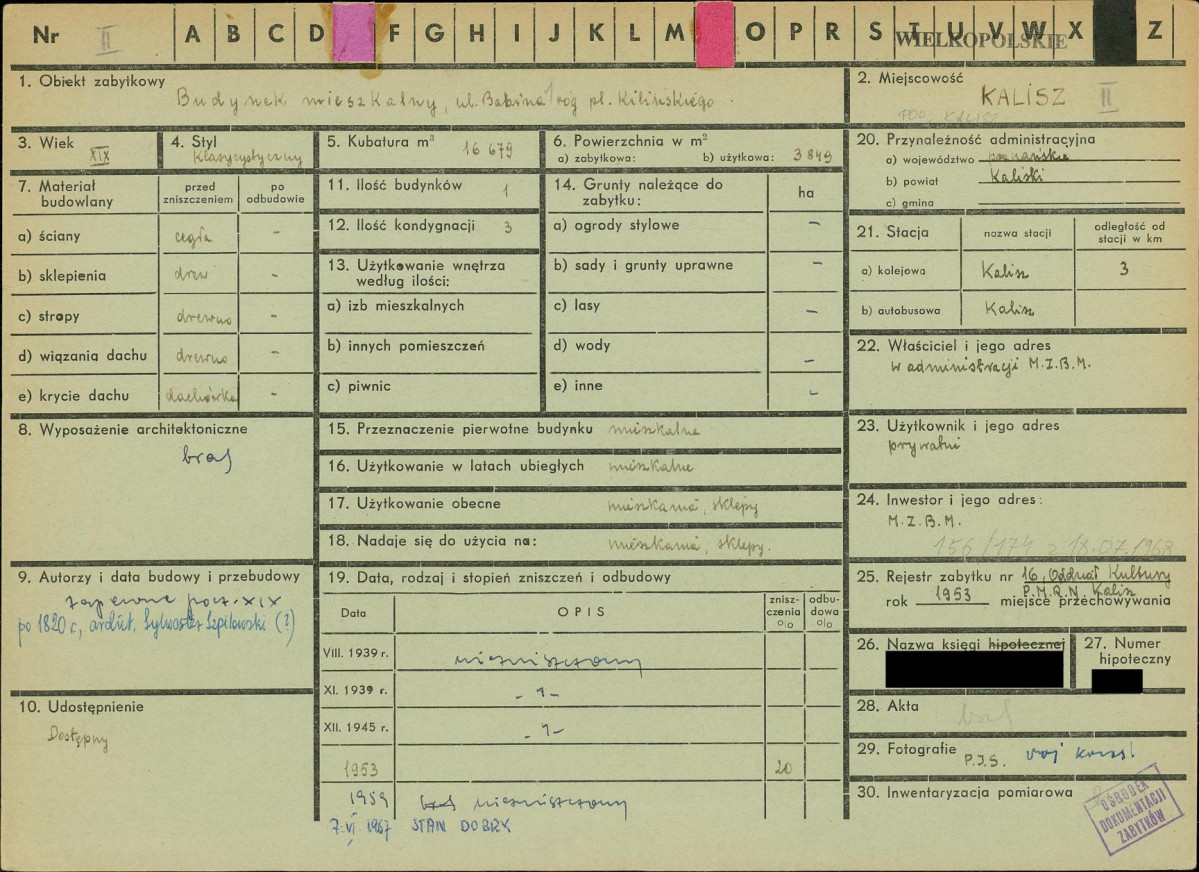 Nr II A B C D F G H I J K L M O P R S T U V W X Z
WIELKOPOLSKIE
1. Obiekt zabytkowy Budynek mieszkalny, ul. Babina/róg pl. Kilińskiego.
2. Miejscowość KALISZ II
3. Wiek XIX
4. Styl klasycystyczny
5. Kubatura m³ 16 679
6. Powierzchnia w m²
a) zabytkowa: b) użytkowa: 3 849
7. Materiał budowlany
przed zniszczeniem
po odbudowie
a) ściany cegła -
b) sklepienia drew -
c) stropy drewno -
d) wiązania dachu drewno -
e) krycie dachu dachówka -
8. Wyposażenie architektoniczne
brak
9. Autorzy i data budowy i przebudowy
zapewne pocz. XIX
po 1820 r, archit. Sylwester Szpilowski (?)
10. Udostępnienie
Dostępny
11. Ilość budynków 1
12. Ilość kondygnacji 3
13. Użytkowanie wnętrza
według ilości:
a) izb mieszkalnych
b) innych pomieszczeń
c) piwnic
14. Grunty należące do
zabytku: ha
a) ogrody stylowe -
b) sady i grunty uprawne -
c) lasy -
d) wody -
e) inne -
15. Przeznaczenie pierwotne budynku mieszkalne
16. Użytkowanie w latach ubiegłych mieszkalne
17. Użytkowanie obecne mieszkania, sklepy
18. Nadaje się do użycia na: mieszkania, sklepy.
19. Data, rodzaj i stopień zniszczeń i odbudowy
Data OPIS znisz-czenia % odbu-dowa %
VIII. 1939 r. niezniszczony
XI. 1939 r. -"-
XII. 1945 r. -"-
1953 20
1959 niezniszczony
7. VI 1967 STAN DOBRY
20. Przynależność administracyjna
a) województwo poznańskie
b) powiat Kaliski
c) gmina
21. Stacja nazwa stacji odległość od stacji w km
a) kolejowa Kalisz 3
b) autobusowa Kalisz
22. Właściciel i jego adres
w administracji M.Z.B.M.
23. Użytkownik i jego adres
prywatni
24. Inwestor i jego adres:
M.Z.B.M.
156/174 z 18.07.1968
25. Rejestr zabytku nr 16, Oddział Kultury
P.M.R.N. Kalisz
rok 1953 miejsce przechowywania
26. Nazwa księgi hipotecznej
27. Numer
hipoteczny
28. Akta brak
29. Fotografie P.I.S.
30. Inwentaryzacja pomiarowa
OŚRODEK
DOKUMENTACJI
ZABYTKÓW